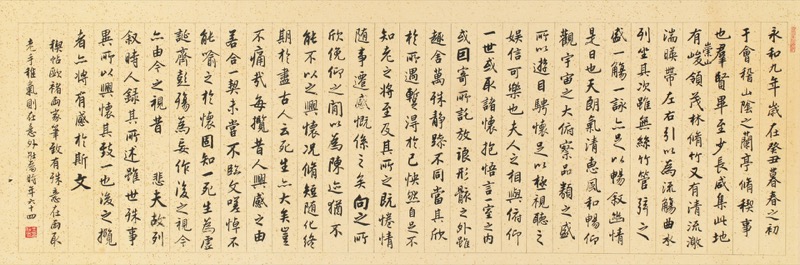 永和九年歲在癸丑暮春之初
于會稽山陰之蘭亭脩稧事
也羣賢畢至少長咸集此地
崇山
有峻領茂林脩竹又有清流激
湍暎帶左右引以為流觴曲水
列坐其次雖無絲竹管弦之
盛一觴一詠亦足以暢叙幽情
是日也天朗氣清惠風和暢仰
觀宇宙之大俯察品類之盛
所以遊目騁懷足以極視聽之
娛信可樂也夫人之相與俯仰
一世或取諸懷抱悟言一室之內
或因寄所託放浪形骸之外雖
趣舍萬殊靜躁不同當其欣
於所遇暫得於己怏然自足不
知老之將至及其所之既惓情
隨事遷感慨係之矣向之所
欣俛仰之閒以為陳迹猶不
能不以之興懷況脩短隨化終
期於盡古人云死生亦大矣豈
不痛哉每攬昔人興感之由
若合一契未嘗不臨文嗟悼不
能喻之於懷固知一死生為虛
誕齊彭殤為妄作後之視今
亦由今之視昔 悲夫故列
叙時人錄其所述雖世殊事
異所以興懷其致一也後之攬
者亦將有感於斯文
稧帖歐褚兩家筆致有殊意在兩取
老手稚氣則在意外 時年六十四